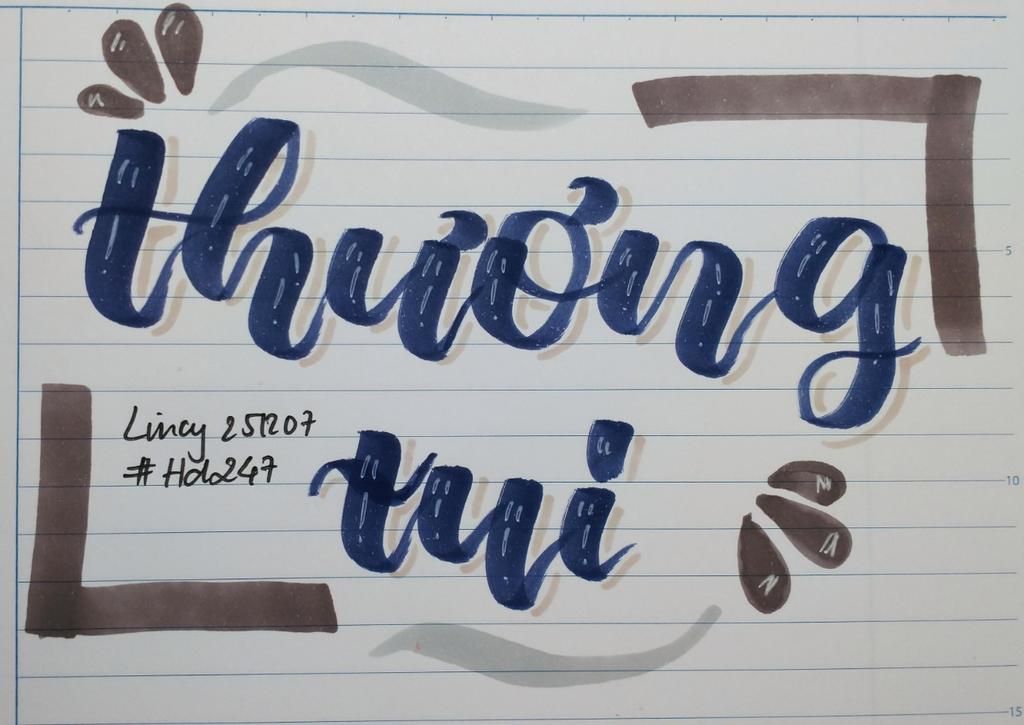 thương
Lincy 251207
tui
5
10
15